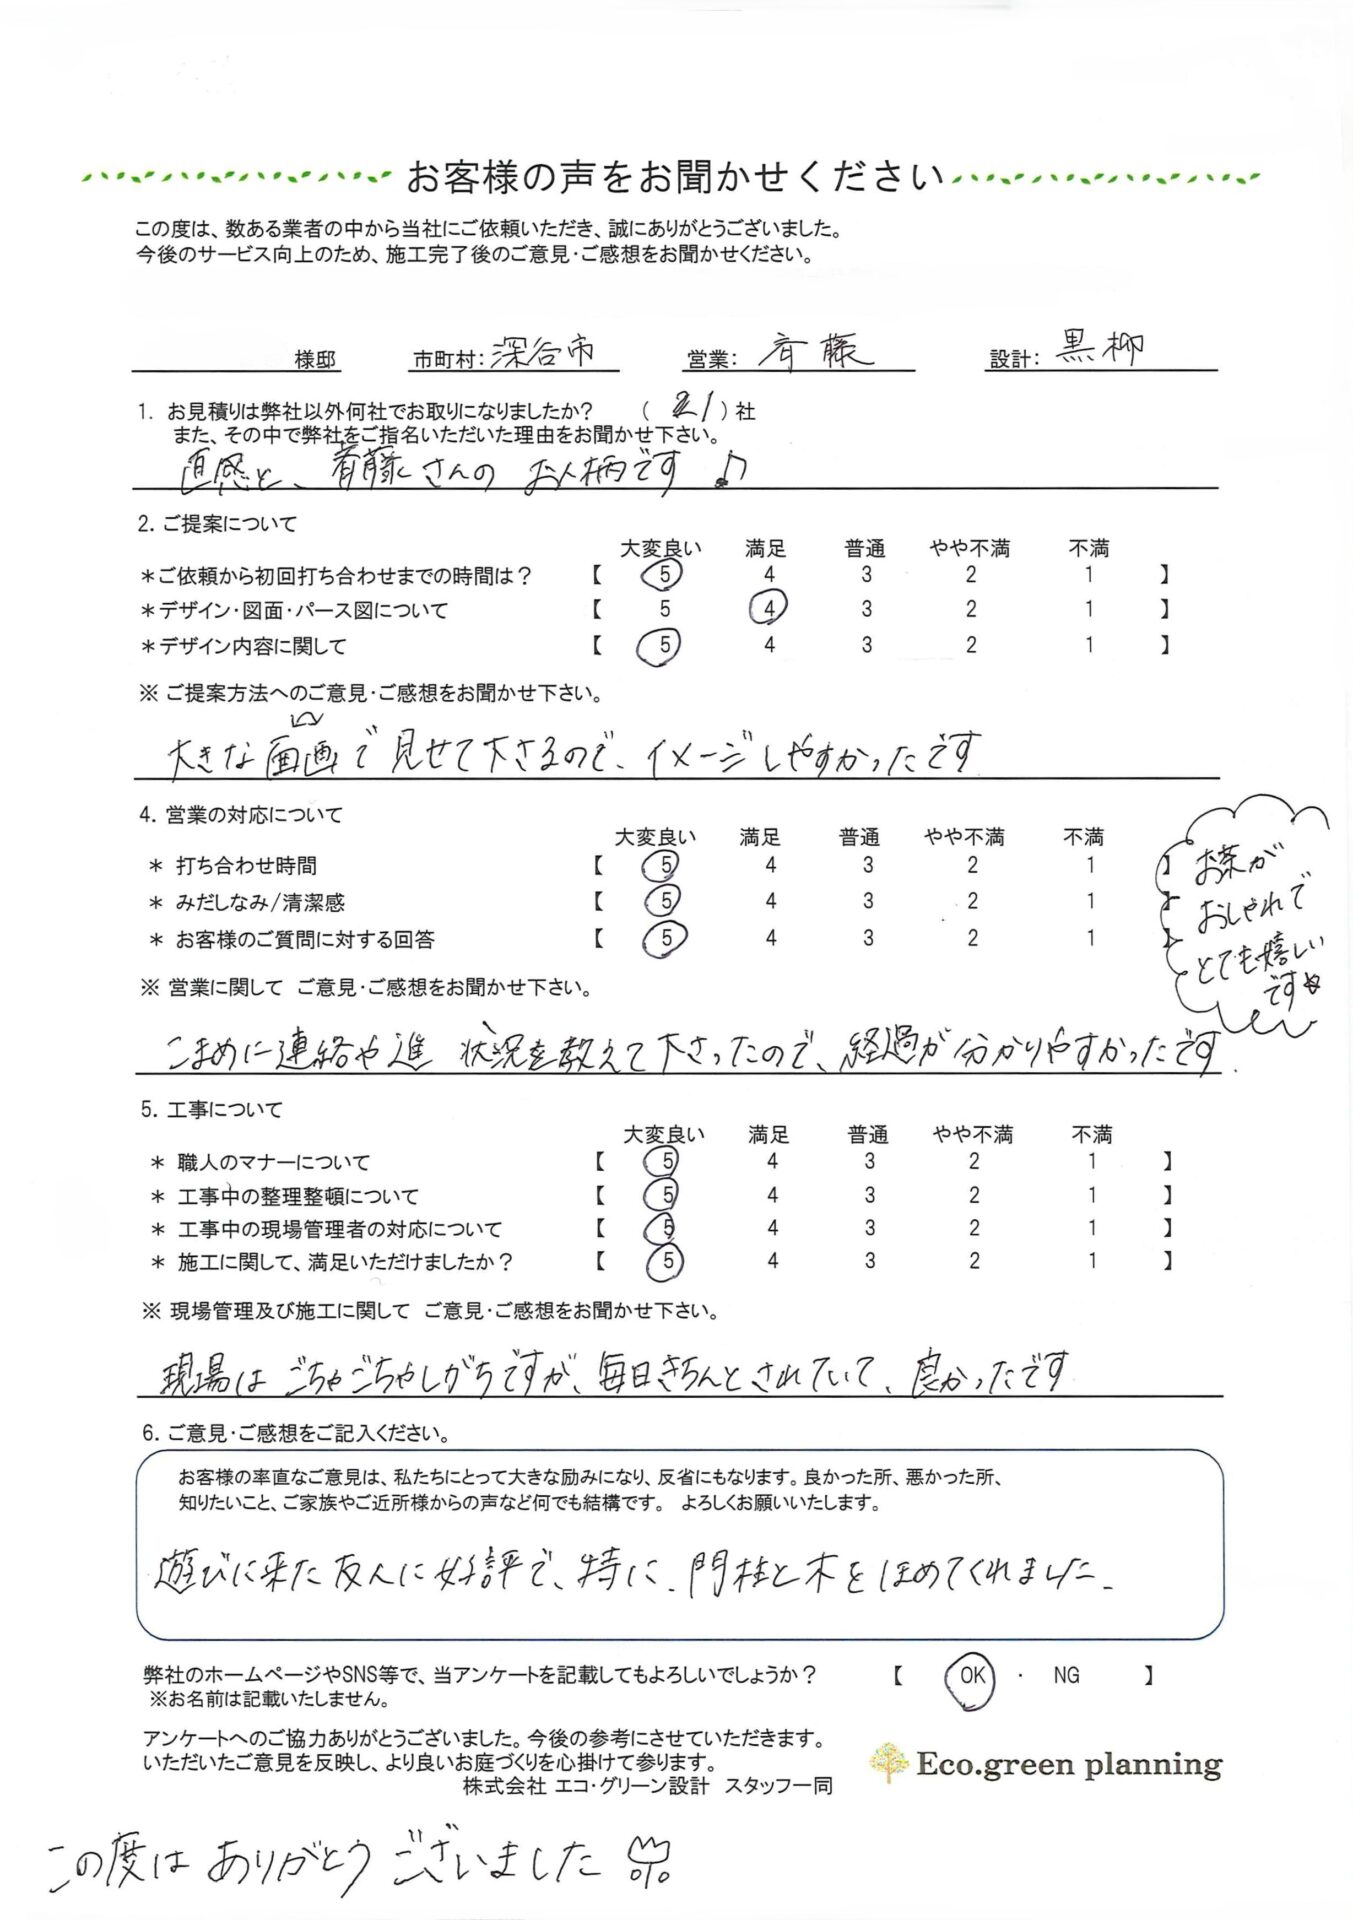 お客様の声をお聞かせください
この度は、数ある業者の中から当社にご依頼いただき、誠にありがとうございました。
今後のサービス向上のため、施工完了後のご意見・ご感想をお聞かせください。
様邸 市町村：深谷市 営業：斉藤 設計：黒柳
1. お見積りは弊社以外何社でお取りになりましたか？ （ 1 ）社
また、その中で弊社をご指名いただいた理由をお聞かせ下さい。
直感と、斉藤さんの お人柄です♪
2. ご提案について
大変良い 満足 普通 やや不満 不満
＊ご依頼から初回打ち合わせまでの時間は？ 【 5 4 3 2 1 】
＊デザイン・図面・パース図について 【 5 4 3 2 1 】
＊デザイン内容に関して 【 5 4 3 2 1 】
※ ご提案方法へのご意見・ご感想をお聞かせ下さい。
大きな画で見せて下さるので、イメージしやすかったです
4. 営業の対応について
大変良い 満足 普通 やや不満 不満
＊ 打ち合わせ時間 【 5 4 3 2 1 】
＊ みだしなみ/清潔感 【 5 4 3 2 1 】
＊ お客様のご質問に対する回答 【 5 4 3 2 1 】
お茶が
おしゃれで
とても嬉しい
です☆
※ 営業に関して ご意見・ご感想をお聞かせ下さい。
こまめに連絡や進 状況を教えて下さったので、経過が分かりやすかったです.
5. 工事について
大変良い 満足 普通 やや不満 不満
＊ 職人のマナーについて 【 5 4 3 2 1 】
＊ 工事中の整理整頓について 【 5 4 3 2 1 】
＊ 工事中の現場管理者の対応について 【 5 4 3 2 1 】
＊ 施工に関して、満足いただけましたか？ 【 5 4 3 2 1 】
※ 現場管理及び施工に関して ご意見・ご感想をお聞かせ下さい。
現場はごちゃごちゃしがちですが、毎日きちんとされていて、良かったです
6. ご意見・ご感想をご記入ください。
お客様の率直なご意見は、私たちにとって大きな励みになり、反省にもなります。良かった所、悪かった所、
知りたいこと、ご家族やご近所様からの声など何でも結構です。 よろしくお願いいたします。
遊びに来た友人に好評で、特に、門柱と木をほめてくれました.
弊社のホームページやSNS等で、当アンケートを記載してもよろしいでしょうか？ 【 OK ・ NG 】
※お名前は記載いたしません。
アンケートへのご協力ありがとうございました。今後の参考にさせていただきます。
いただいたご意見を反映し、より良いお庭づくりを心掛けて参ります。
株式会社 エコ・グリーン設計 スタッフ一同
Eco.green planning
この度は ありがとう ございました